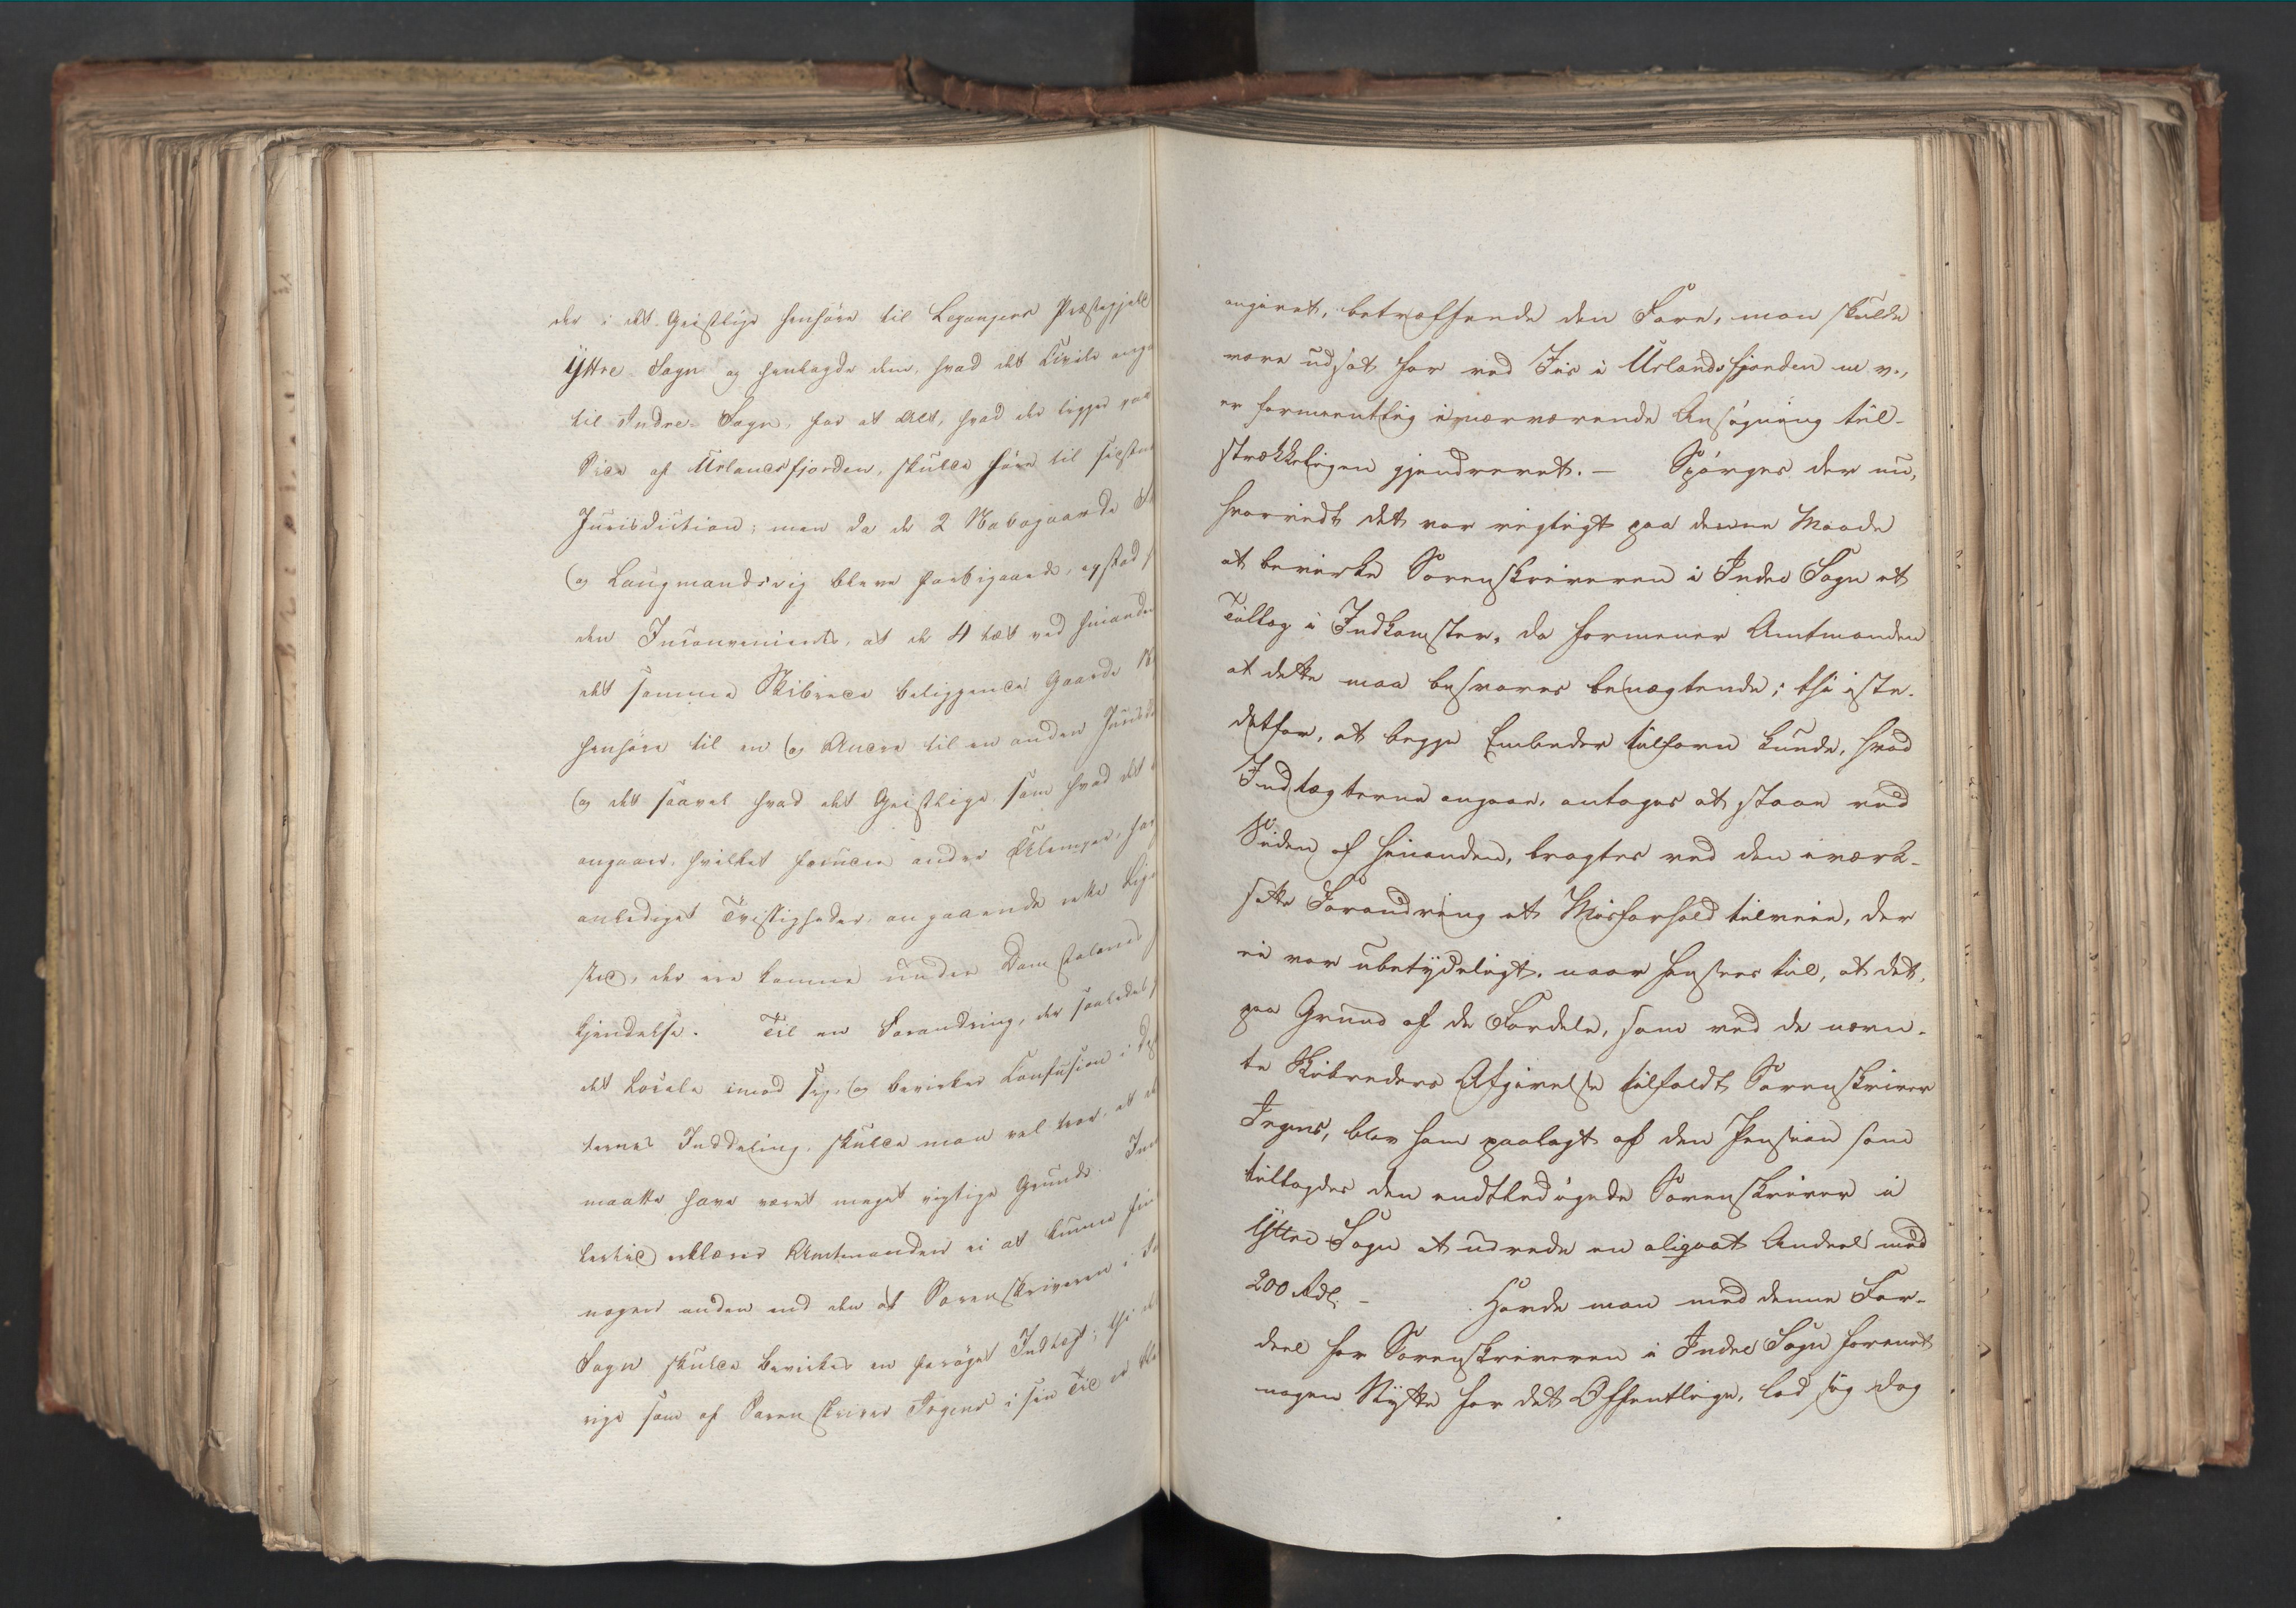 der i det Geistlige henhøre til Leganger Præstegjeld
Yttre Sogn og henlagde dem, hvad det Civile anga
til Indre-Sogn, for at Alt, hvad der ligger paa
Side af Urlandsfjorden, skulde høre til sidstn
Jurisdiction; men da de 2 Nabogaarde
og Laugmandsvig bleve forbigaaede, opstod
den Inconvenients, at de 4 tæt ved hinanden
det samme Skibrede beliggende Gaarde
henhøre til en og Andre til en anden Jurisd
og det saavel hvad det Geistlige som hvad det
angaaer, hvilket foruden andre Ulemper, har
anlediget Tvistigheder, angaaende
der ere komne under Domstolenes
Kjendelse. Til en Forandring, der saaledes
det Locale imod sig, og bevirker Confusion i
ternes Inddeling, skulde man vel troe, at d
maatte have været meget vigtige Grunde. Im
lertid erklærer Amtmanden ei at kunne fin
nogen anden end den at Sorenskriveren i
Sogn skulde bevirkes en forøget Indtægt; thi
rige som af Sorenskriver Irgens i sin Tid er
angivet, betræffende den Fare, man skulde
være udsat for ved Iis i Urlandsfjorden m. v.,
er formeentlig i nærværende Ansøgning til-
strækkeligen gjendrevet. — Spørges der nu,
hvorvidt det var vigtigt paa denne Maade
at bevirke Sorenskriveren i Indre Sogn et
Tillæg i Indkomster, da formener Amtmanden
at dette maa besvares benægtende; thi iste-
detfor, at begge Embeder tilforn kunde, hvad
Indtægterne angaae, antages at staae ved
Siden af hinanden, bragtes ved den iværk-
satte Forandring et Misforhold tilveie, der
ei var ubetydeligt, naar hensees til, at det,
paa Grund af de Fordele, som ved de nævn-
te Skibreders Afgivelse tilfaldt Sorenskriver
Irgens, blev ham paalagt af den Pension som
tillagdes den entledigede Sorenskriver i
Yttre Sogn at udrede en aliqvot Andeel med
200 Rdl. — Havde man med denne For-
deel for Sorenskriveren i Indre Sogn forenet
nogen Nytte for det Offentlige, lod sig dog